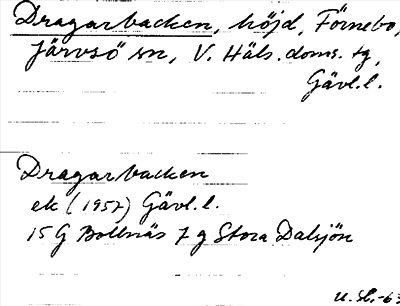 Dragarbacken, höjd, Förnebo,
Järvsö sn, V. Häls. doms. tg,
Gävl.l.
Dragarbacken
ek (1957) Gävl.l.
15 G Bollnäs 7 g Stora Dalsjön
U. St.-63